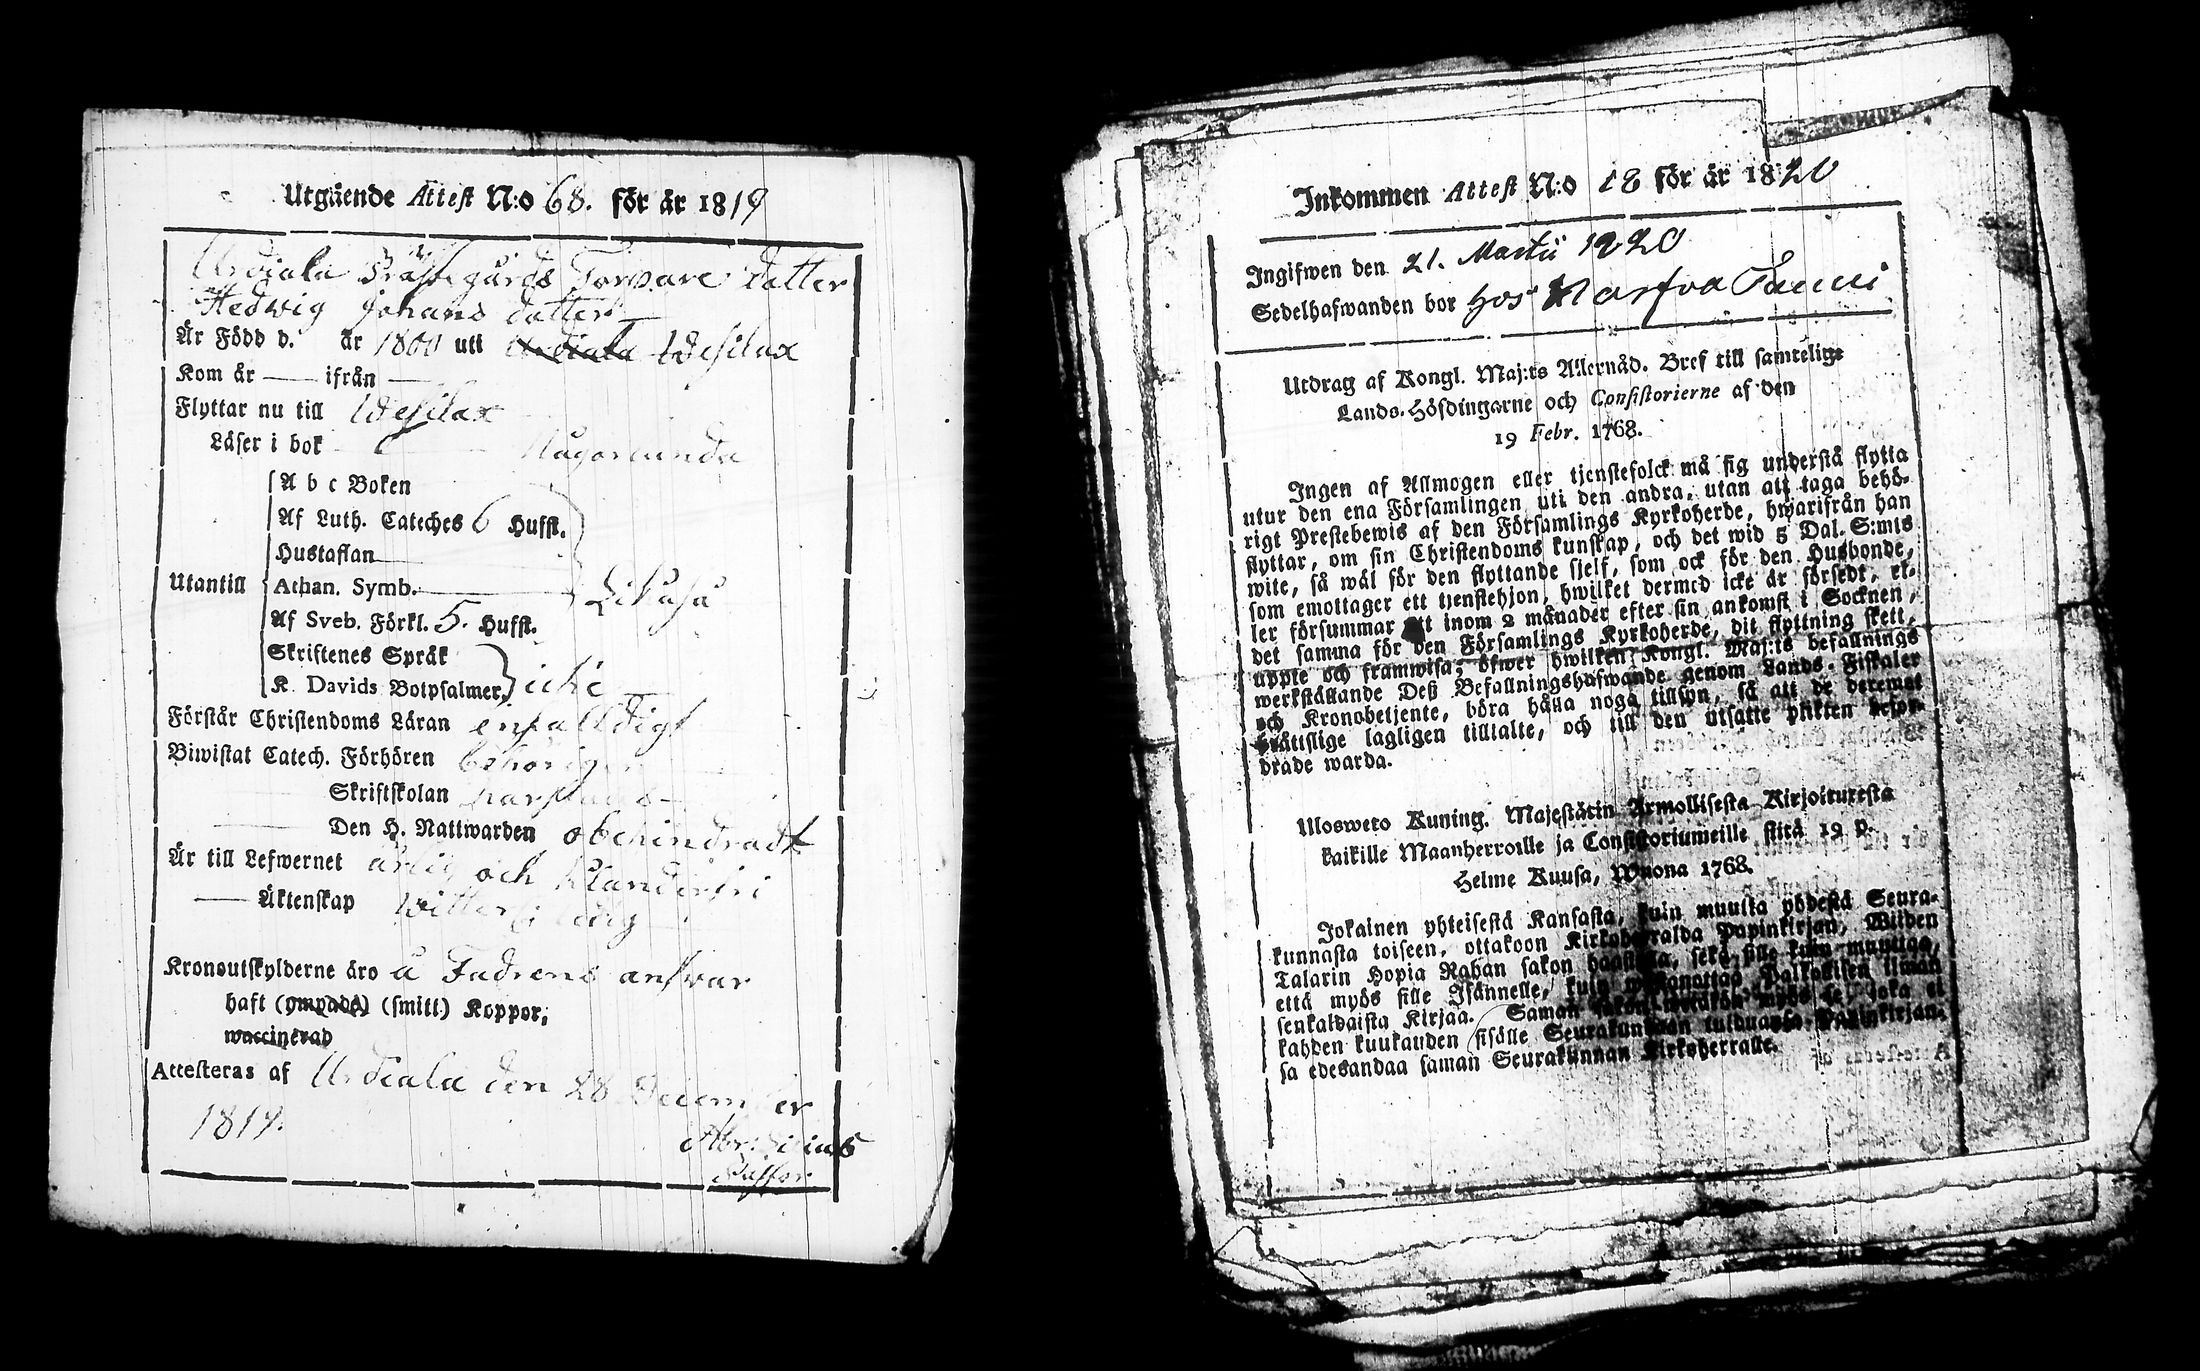 Utgäende Attest N:o 68. för är 1819
Urdiala Prästegårds Torpare dotter
Hedwig Johans dotter
Är Född d. är 1800 uti Urdiala Wesilax
Kom är — ifrån —
Flyttar nu till Wesilax
Läser i bok Någorlunda
A b c Boken
Af Luth. Cateches 6 Hufst.
Hustaflan
Utantill Athan. Symb. Likaså
Af Sveb. Förkl. 5. Hufst.
Skriftenes Språk
K. Davids Botpsalmer, icke
Förstår Christendoms Läran enfalldigt
Biwistat Catech. Förhören behörigen
Skriftskolan
Den H. Nattwarden obehindradt
Är till Lefwernet ärlig och klanderfri
Äktenskap Witterl: ledig
Kronoutskylderne äro å Fadrens answar
haft (ympadA) (smitt.) Koppor;
waccinerad
Attesteras af Urdiala den 28 December
1819.
Pastor
Inkommen Attest N:o 18 för är 1820
Ingifwen den 21. Martii 1820
Sedelhafwanden bor hos
Utdrag af Kongl. Maj:ts Allernåd. Bref till samtelige
Lands-Höfdingarne och Consistorierne af den
19 Febr. 1768.
Ingen af Allmogen eller tjenstefolck må sig understå flytta
utur den ena Församlingen uti den andra, utan att taga behö-
rigt Prestebewis af den Församlings Kyrkoherde, hwarifrån han
flyttar, om sin Christendoms kunskap, och det wid 5 Dal. S:mts
wite, så wäl för den flyttande sjelf, som ock för den Husbonde,
som emottager ett tjenstehjon, hwilket dermed icke är försedt, el-
ler försummar att inom 2 månader efter sin ankomst i Socknen,
det samma för den Församlings Kyrkoherde, dit flyttning skett,
uppte och framwisa; öfwer hwilken Kongl. Maj:ts befallnings
werkställande Deß Befallningshafwande genom Lands-Fiskaler
och Kronobetjente, böra hälla noga tillsyn, så att de deremot
bråttslige lagligen tilltalte, och till den utsatte plikten befor-
drade warda.
Ulosweto Kuning. Majestätin Armollisesta Kirjoituxesta
kaikille Maanherroille ja Consistoriumeille siitä 19 p.
Helme Kuusa, Wuona 1768.
Jokainen yhteisestä Kansasta, kuin muutta yödestä Seura-
kunnasta toiseen, ottakoon Kirkoherralda Papinkirjan, Wiiden
Talarin Hopia Rahan sakon haastolla, sekä sille kuin muuttaa,
että myös sille Isännelle, kuin Palkollisen ilman
senkaldaista Kirjaa. Saman sakon myös se joka ei
kahden kuukauden sisälle Seurakundaan tulduansa Papinkirjan-
sa edesandaa saman Seurakunnan Kirkoherralle.